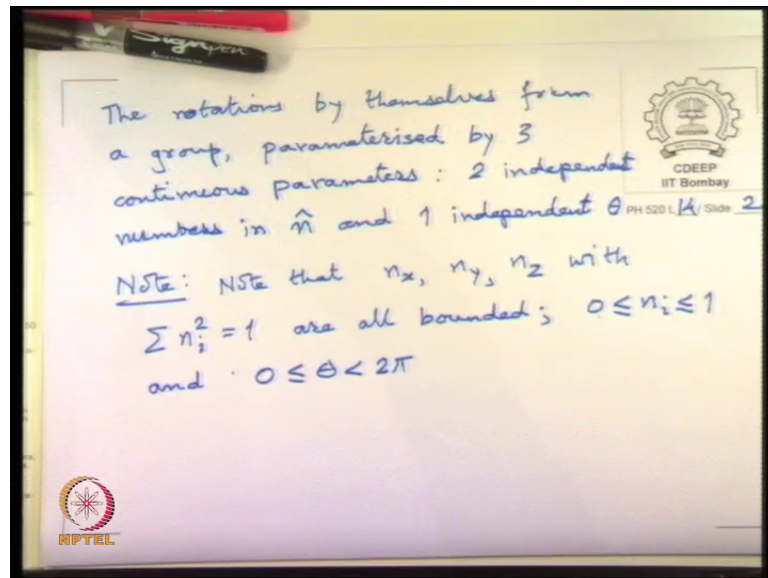 Signpen
The rotations by themselves form
a group, parameterised by 3
continuous parameters : 2 independent
numbers in n̂ and 1 independent θ
CDEEP
IIT Bombay
PH 520 L 14 / Slide 2
Note: Note that nx, ny, nz with
Σ ni² = 1 are all bounded; 0 ≤ ni ≤ 1
and 0 ≤ θ < 2π
NPTEL